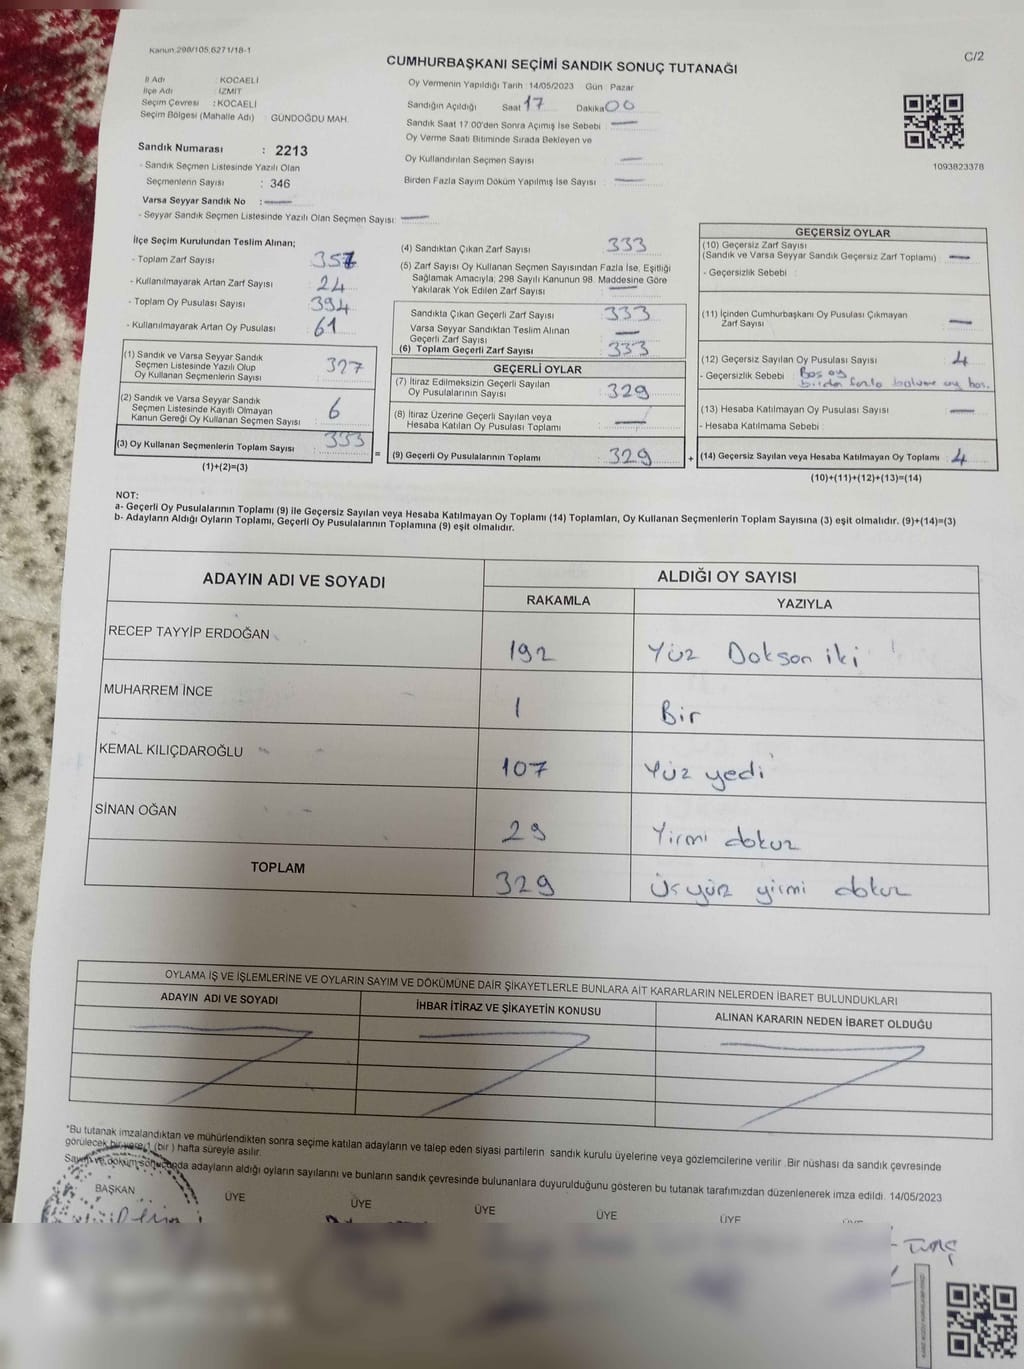 Kanun.298/105,6271/18-1
C/2
CUMHURBAŞKANI SEÇİMİ SANDIK SONUÇ TUTANAĞI
İl Adı : KOCAELİ
İlçe Adı : İZMİT
Seçim Çevresi : KOCAELİ
Seçim Bölgesi (Mahalle Adı) GÜNDOĞDU MAH.
Oy Vermenin Yapıldığı Tarih : 14/05/2023 Gün Pazar
Sandığın Açıldığı Saat 17 Dakika 00
Sandık Saat 17:00'den Sonra Açımış İse Sebebi :
Oy Verme Saati Bitiminde Sırada Bekleyen ve
Oy Kullandırılan Seçmen Sayısı
Birden Fazla Sayım Döküm Yapılmış İse Sayısı :
1093823378
Sandık Numarası : 2213
- Sandık Seçmen Listesinde Yazılı Olan
Seçmenlerin Sayısı : 346
Varsa Seyyar Sandık No :
- Seyyar Sandık Seçmen Listesinde Yazılı Olan Seçmen Sayısı:
İlçe Seçim Kurulundan Teslim Alınan;
- Toplam Zarf Sayısı 357
- Kullanılmayarak Artan Zarf Sayısı 24
- Toplam Oy Pusulası Sayısı 394
- Kullanılmayarak Artan Oy Pusulası 61
(1) Sandık ve Varsa Seyyar Sandık
Seçmen Listesinde Yazılı Olup
Oy Kullanan Seçmenlerin Sayısı 327
(2) Sandık ve Varsa Seyyar Sandık
Seçmen Listesinde Kayıtlı Olmayan
Kanun Gereği Oy Kullanan Seçmen Sayısı 6
(3) Oy Kullanan Seçmenlerin Toplam Sayısı 333
(1)+(2)=(3)
(4) Sandıktan Çıkan Zarf Sayısı 333
(5) Zarf Sayısı Oy Kullanan Seçmen Sayısından Fazla İse, Eşitliği
Sağlamak Amacıyla, 298 Sayılı Kanunun 98. Maddesine Göre
Yakılarak Yok Edilen Zarf Sayısı
Sandıkta Çıkan Geçerli Zarf Sayısı 333
Varsa Seyyar Sandıktan Teslim Alınan
Geçerli Zarf Sayısı
(6) Toplam Geçerli Zarf Sayısı 333
GEÇERLİ OYLAR
(7) İtiraz Edilmeksizin Geçerli Sayılan
Oy Pusulalarının Sayısı 329
(8) İtiraz Üzerine Geçerli Sayılan veya
Hesaba Katılan Oy Pusulası Toplamı
= (9) Geçerli Oy Pusulalarının Toplamı 329
GEÇERSİZ OYLAR
(10) Geçersiz Zarf Sayısı
(Sandık ve Varsa Seyyar Sandık Geçersiz Zarf Toplamı) :
- Geçersizlik Sebebi :
(11) İçinden Cumhurbaşkanı Oy Pusulası Çıkmayan
Zarf Sayısı
(12) Geçersiz Sayılan Oy Pusulası Sayısı 4
- Geçersizlik Sebebi : Boş oy
birden fazla bölüme oy bas.
(13) Hesaba Katılmayan Oy Pusulası Sayısı
- Hesaba Katılmama Sebebi :
+ (14) Geçersiz Sayılan veya Hesaba Katılmayan Oy Toplamı 4
(10)+(11)+(12)+(13)=(14)
NOT:
a- Geçerli Oy Pusulalarının Toplamı (9) ile Geçersiz Sayılan veya Hesaba Katılmayan Oy Toplamı (14) Toplamları, Oy Kullanan Seçmenlerin Toplam Sayısına (3) eşit olmalıdır. (9)+(14)=(3)
b- Adayların Aldığı Oyların Toplamı, Geçerli Oy Pusulalarının Toplamına (9) eşit olmalıdır.
ADAYIN ADI VE SOYADI
ALDIĞI OY SAYISI
RAKAMLA YAZIYLA
RECEP TAYYİP ERDOĞAN 192 Yüz Doksan iki
MUHARREM İNCE 1 Bir
KEMAL KILIÇDAROĞLU 107 Yüz yedi
SİNAN OĞAN 29 Yirmi dokuz
TOPLAM 329 Üçyüz yirmi dokuz
OYLAMA İŞ VE İŞLEMLERİNE VE OYLARIN SAYIM VE DÖKÜMÜNE DAİR ŞİKAYETLERLE BUNLARA AİT KARARLARIN NELERDEN İBARET BULUNDUKLARI
ADAYIN ADI VE SOYADI İHBAR İTİRAZ VE ŞİKAYETİN KONUSU ALINAN KARARIN NEDEN İBARET OLDUĞU
*Bu tutanak imzalandıktan ve mühürlendikten sonra seçime katılan adayların ve talep eden siyasi partilerin sandık kurulu üyelerine veya gözlemcilerine verilir .Bir nüshası da sandık çevresinde
görülecek bir yere 1 (bir ) hafta süreyle asılır.
Sayım ve döküm sonucunda adayların aldığı oyların sayılarını ve bunların sandık çevresinde bulunanlara duyurulduğunu gösteren bu tutanak tarafımızdan düzenlenerek imza edildi. 14/05/2023
BAŞKAN ÜYE ÜYE ÜYE ÜYE ÜYE